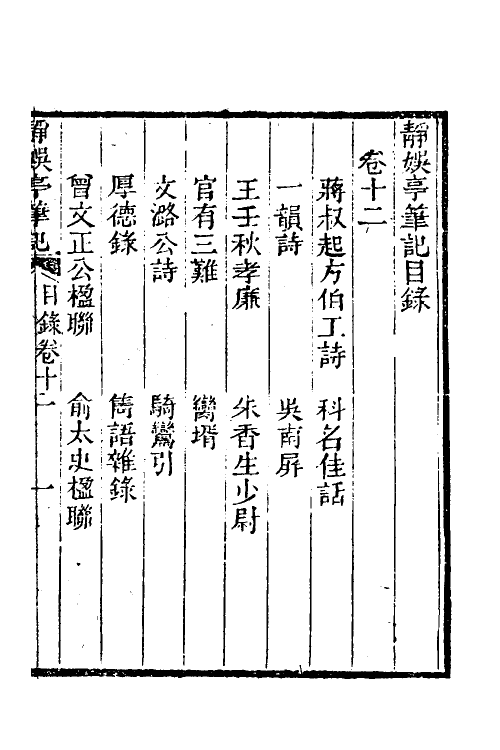 靜娛亭筆記目錄
卷十二
蔣叔起方伯工詩　科名佳話
一韻詩　吳南屏
王壬秋孝廉　朱香生少尉
官有三難　鸞壻
文潞公詩　騎鸞引
厚德錄　雋語雜錄
曾文正公楹聯　俞太史楹聯
靜娛亭筆記　目錄卷十二　一